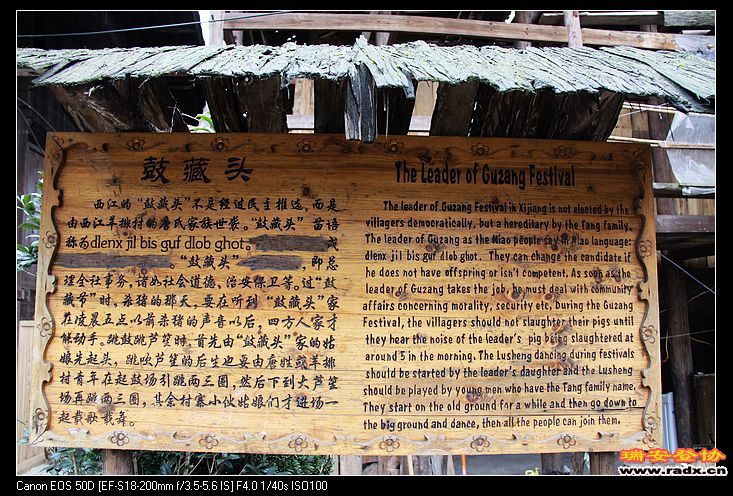 鼓藏头
西江的“鼓藏头”不是经过民主推选，而是
由西江羊排村的唐氏家族世袭。“鼓藏头”苗语
称为dlenx jil bis guf dlob ghot. 或
。“鼓藏头” ，即总
理全社事务，诸如社会道德，治安保卫等。过“鼓
藏节”时，杀猪的那天，要在听到“鼓藏头”家
在凌晨五点以前杀猪的声音以后，四方人家才
能动手。跳鼓跳芦笙时，首先由“鼓藏头”家的姑
娘先起头，跳吹芦笙的后生也要由唐姓或羊排
村青年在起鼓场引跳两三圈，然后下到大芦笙
场再跳两三圈，其余村寨小伙姑娘们才进场一
起载歌载舞。
The Leader of Guzang Festival
The leader of Guzang Festival in Xijiang is not elected by the
villagers democratically, but a hereditary by the Tang family.
The leader of Guzang as the Miao people say in Miao language:
dlenx jil bis guf dlob ghot. They can change the candidate if
he does not have offspring or isn't competent. As soon as the
leader of Guzang takes the job, he must deal with community
affairs concerning morality, security etc. During the Guzang
Festival, the villagers should not slaughter their pigs until
they hear the noise of the leader's pig being slaughtered at
around 5 in the morning. The Lusheng dancing during festivals
should be started by the leader's daughter and the Lusheng
should be played by young men who have the Tang family name.
They start on the old ground for a while and then go down to
the big ground and dance, then all the people can join them.
Canon EOS 50D [EF-S18-200mm f/3.5-5.6 IS] F4.0 1/40s ISO100
瑞安登协
www.radx.cn